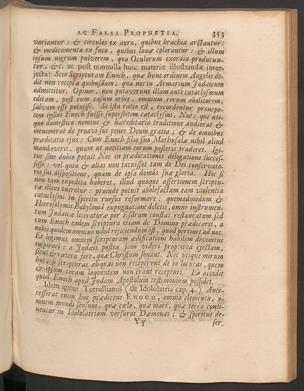 AC FALSA PROPHETIA. 353
variantur: & circulos ex auro, quibus brachia arctantur:
& medicamenta ex fuco, quibus lanæ colorantur: & illum
ipsum nigrum pulverem, quo Oculorum exordia producun-
tur, &c. ac post nonnulla huic materiæ illustrandæ inter-
jecta: Scio Scripturam Enoch, quæ hunc ordinem Angelis de-
dit non recipi à quibusdam; quia nec in Armarium Judaicum
admittitur. Opinor, non putaverunt illam ante cataclysmum
editam, post eum casum orbis, omnium rerum abolitorem,
salvam esse potuisse. Si ista ratio est, recordentur pronepo-
tem ipsius Enoch fuisse superstitem cataclysmi, Noë; qui uti-
que domestico nomine & hæreditaria traditione audierat &
meminerat de proavi sui penes Deum gratia, & de omnibus
prædicatis ejus: Cum Enoch filio suo Mathusalæ nihil aliud
mandaverit, quam ut notitiam eorum posteris traderet. Igi-
tur sine dubio potuit Noë in prædicationis delegatione succes-
sisse: vel quia & alias non tacuisset tam de Dei conservato-
ris sui dispositione, quam de ipsa domûs suæ gloria. Hoc si
non tam expedito haberet, illud quoque assertionem scriptu-
ræ illius tueretur: perinde potuit abolefactam eam violentia
cataclysmi in spiritu rursus reformare: quemadmodum &
Hierosolymis Babylonia expugnatione deletis, omne instrumen-
tum Judaicæ literaturæ per Esdram constat restauratum sed
cum Enoch eadem scriptura etiam de Domino prædicarit, a
nobis quidem omnino nihil rejiciendum est, quod pertinet ad nos.
Et legimus omnem scripturam ædificationi habilem divinitus
inspirari: a Judæis postea jam videri propterea rejectam,
sicut & cætera fere, quæ Christum sonant. Nec utique mirum
hoc, si scripturas aliquas non receperunt de eo locutas, quem
& ipsum coram loquentem non erant recepturi. Eo accedit
quod Enoch apud Judam Apostolum testimonium possidet.
Idem igitur Tertullianus (de Idololatria cap. 4.) Ante-
cesserat enim hoc prædicens ENOCH, omnia elementa, o-
mnem mundi censum, quæ cælo, quæ mari, quæ terra conti-
nentur in Idololatriam versuros Dæmonas; & spiritus de-
Yy ser-